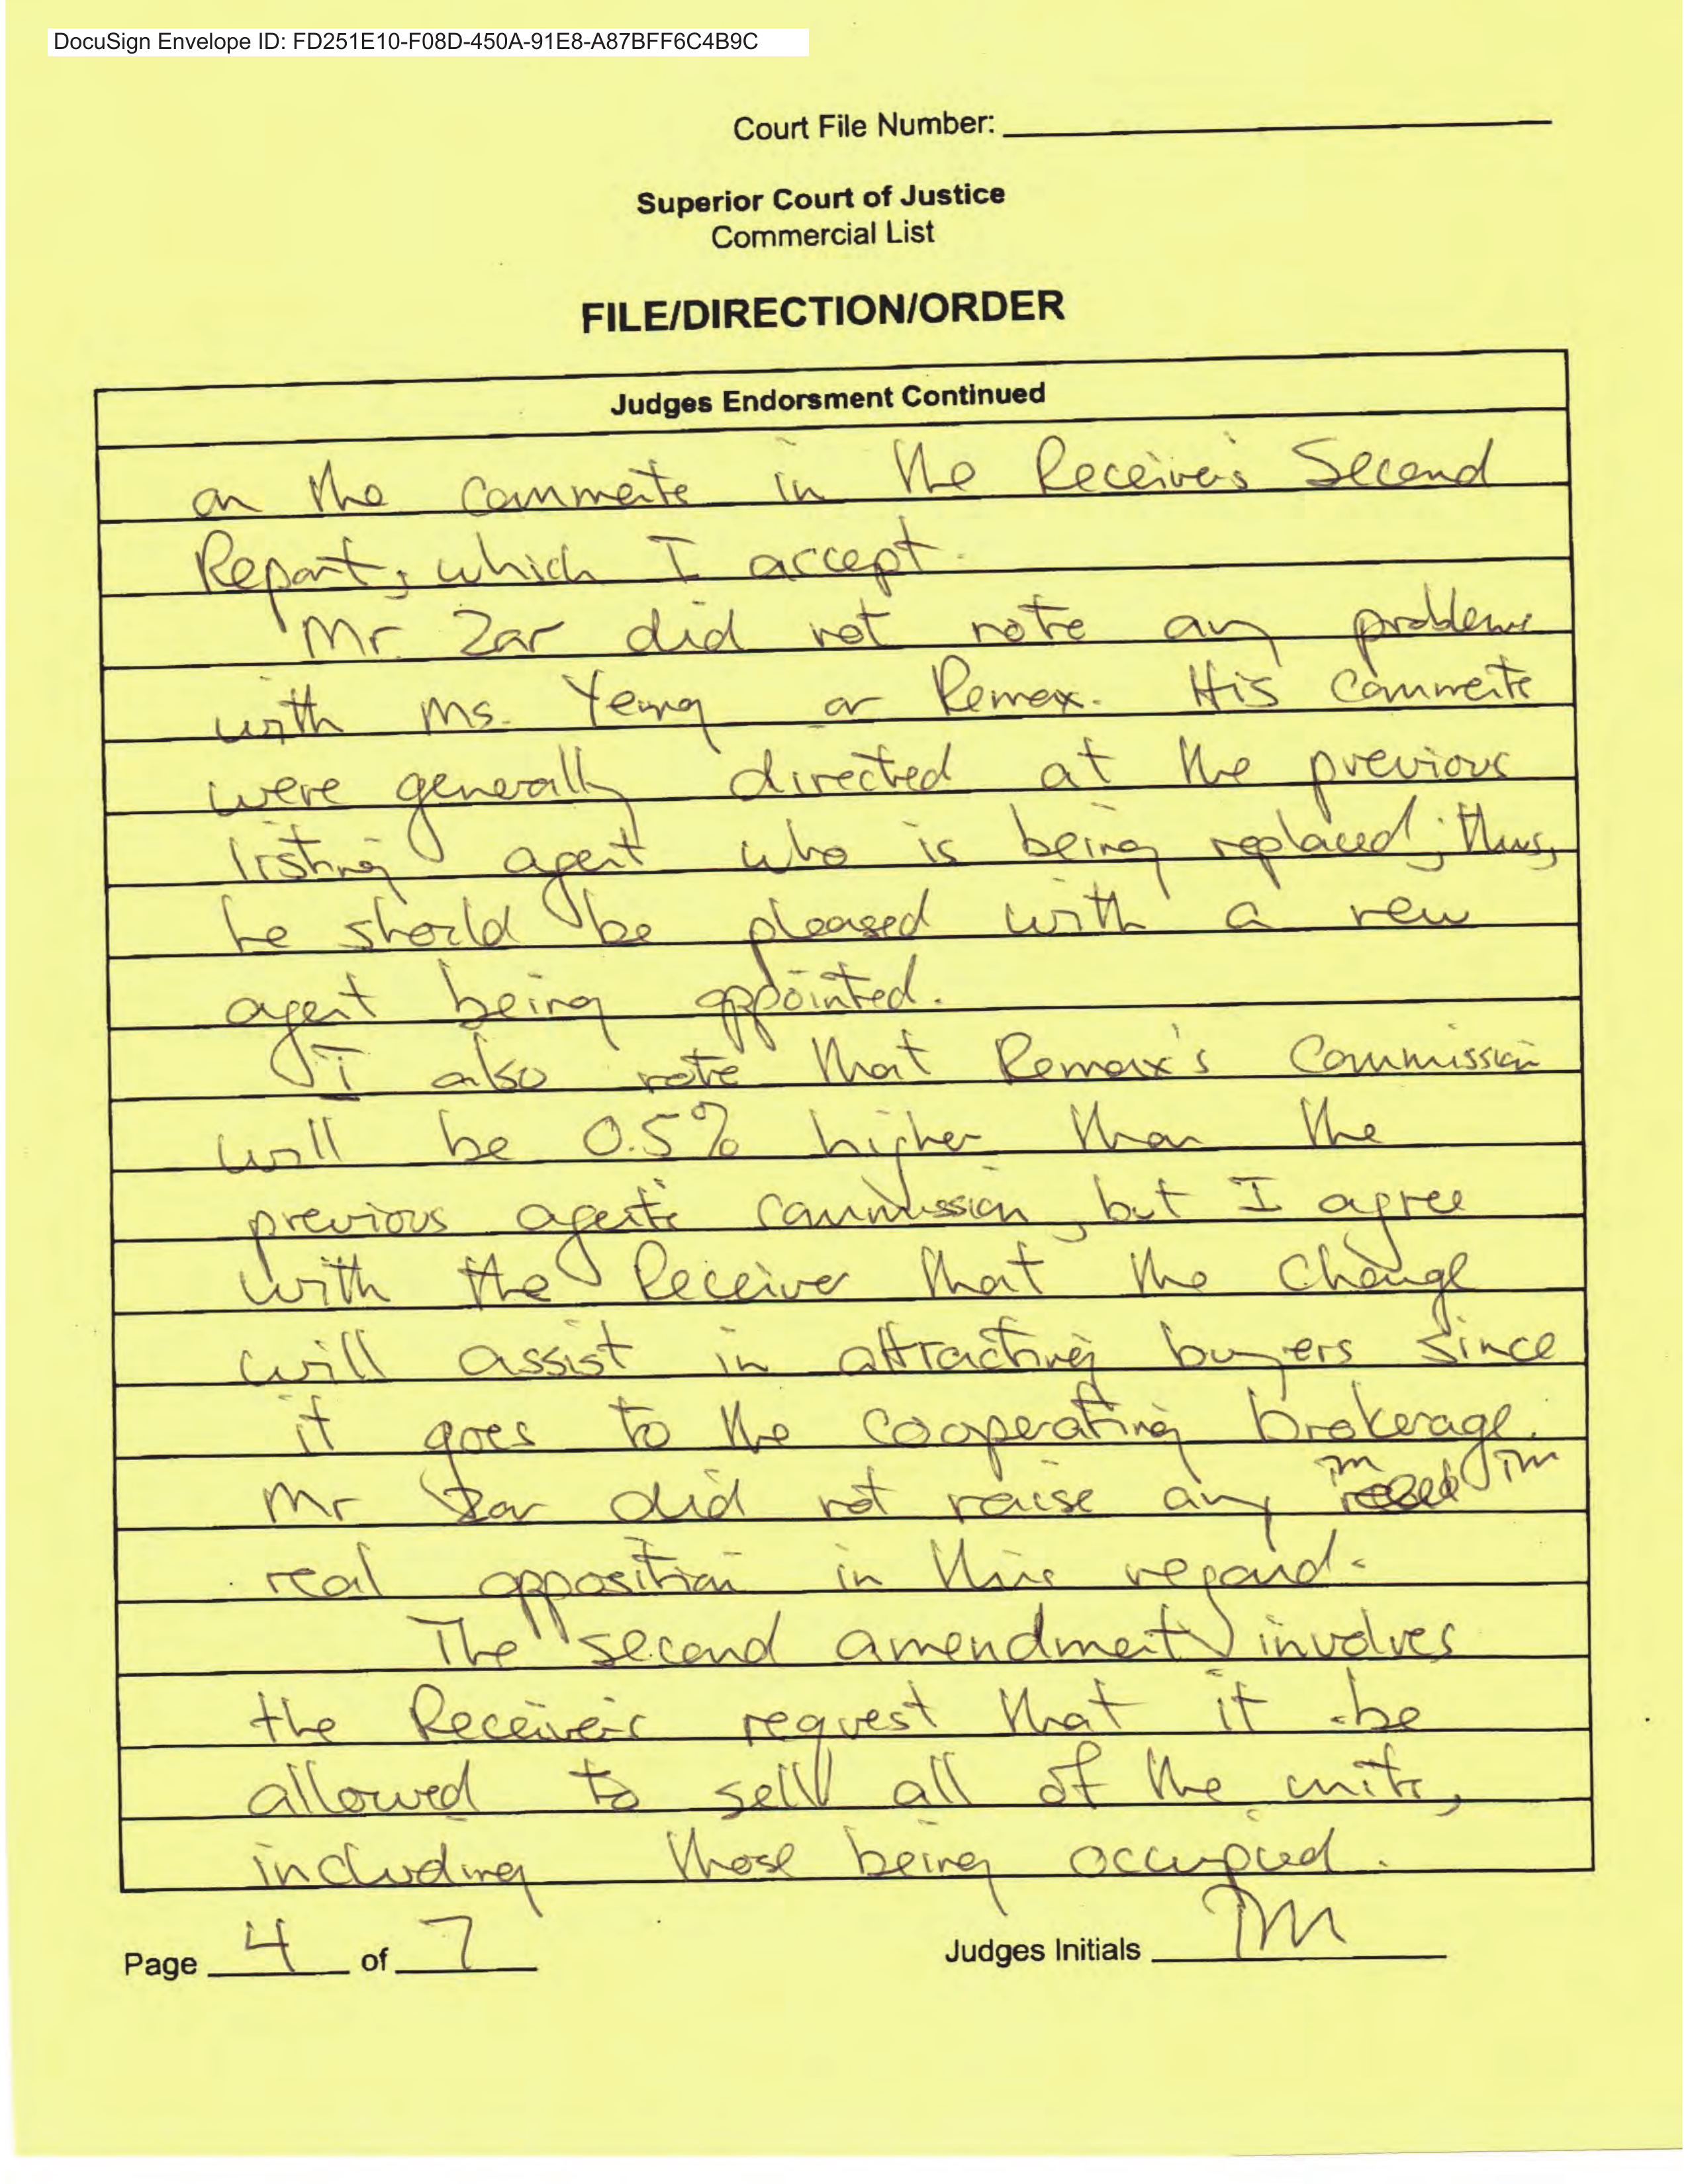 DocuSign Envelope ID: FD251E10-F08D-450A-91E8-A87BFF6C4B9C
Court File Number:
Superior Court of Justice
Commercial List
FILE/DIRECTION/ORDER
Judges Endorsment Continued
on the comments in the Receiver's Second
Report, which I accept.
Mr. Zar did not note any problems
with Ms. Yeung or Remax. His comments
were generally directed at the previous
listing agent who is being replaced; thus,
he should be pleased with a new
agent being appointed.
I also note that Remax's commission
will be 0.5% higher than the
previous agent's commission, but I agree
with the Receiver that the change
will assist in attracting buyers since
it goes to the cooperating brokerage.
Mr Zar did not raise any
real opposition in this regard.
The second amendment involves
the Receiver's request that it be
allowed to sell all of the units,
including those being occupied.
Page 4 of 7
Judges Initials TM